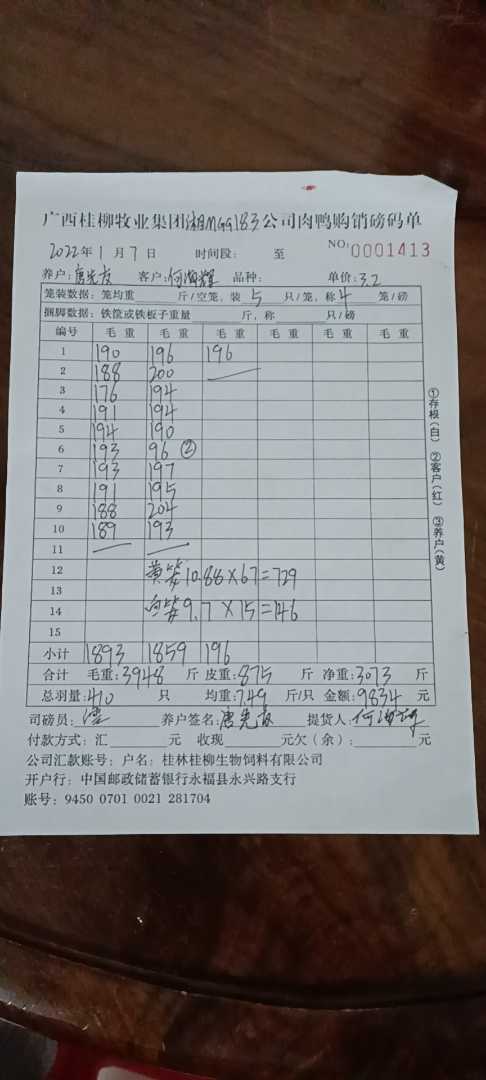 广西桂柳牧业集团湘MGG183公司肉鸭购销磅码单
2022年1月7日 时间段: 至 NO:0001413
养户:唐先友 客户:何海辉 品种: 单价:3.2
笼装数据:笼均重 斤/空笼,装5只/笼,称4笼/磅
捆脚数据:铁筐或铁板子重量 斤,称 只/磅
编号 毛重 毛重 毛重 毛重 毛重 毛重
1 190 196 196
2 188 200
3 176 194
4 191 194
5 194 190
6 193 96 ②
7 193 197
8 191 195
9 188 204
10 189 193
11
12 黄笼10.88×67=729
13
14 白笼9.7×15=146
15
小计 1893 1859 196
合计 毛重:3948斤 皮重:875斤 净重:3073斤
总羽量:410只 均重:7.49斤/只 金额:9834元
司磅员: 养户签名:唐先友 提货人:何海辉
付款方式:汇 元 收现 元欠(余): 元
公司汇款账号:户名:桂林桂柳生物饲料有限公司
开户行:中国邮政储蓄银行永福县永兴路支行
账号:9450 0701 0021 281704
①存根(白) ②客户(红) ③养户(黄)